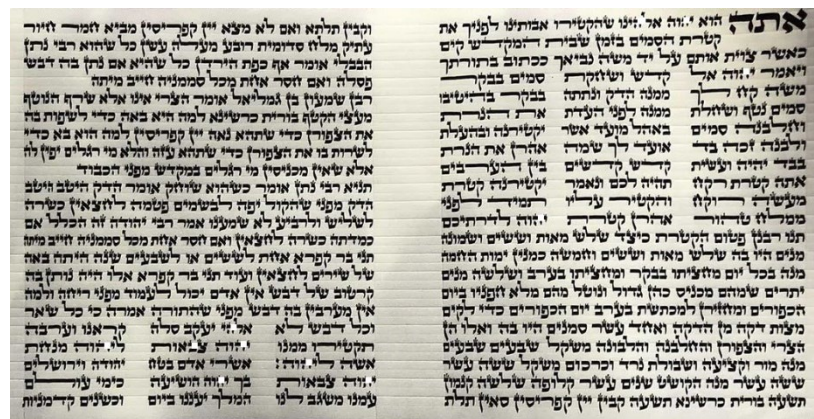 אתה הוא יהוה אלהינו שהקטירו אבותינו לפניך את
קטרת הסמים בזמן שבית המקדש קים
כאשר צוית אותם על יד משה נביאך ככתוב בתורתך
ויאמר יהוה אל קדש ושחקת סמים בבקר
משה קח לך ממנה הדק ונתתה בבקר בהיטיבו
סמים נטף ושחלת ממנה לפני העדת את הנרת
וחלבנה סמים באהל מועד אשר יקטירנה ובהעלת
ולבנה זכה בד אועד לך שמה אהרן את הנרת
בבד יהיה ועשית קדש קדשים בין הערבים
אתה קטרת רקח תהיה לכם ונאמר יקטירנה קטרת
מעשה רוקח והקטיר עליו תמיד לפני
ממלח טהור אהרן קטרת יהוה לדרתיכם
תנו רבנן פטום הקטרת כיצד שלש מאות וששים ושמונה
מנים היו בה שלש מאות וששים וחמשה כמנין ימות החמה
מנה בכל יום מחציתו בבקר ומחציתו בערב ושלשה מנים
יתרים שמהם מכניס כהן גדול ונוטל מהם מלא חפניו ביום
הכפורים ומחזירן למכתשת בערב יום הכפורים כדי לקים
מצות דקה מן הדקה ואחד עשר סמנים היו בה ואלו הן
הצרי והצפורן והחלבנה והלבונה משקל שבעים שבעים
מנה מור וקציעה ושבולת נרד וכרכום משקל ששה עשר
ששה עשר מנה הקושט שנים עשר קלופה שלשה קנמון
תשעה בורית כרשינא תשעה קבין יין קפריסין סאין תלת
וקבין תלתא ואם לא מצא יין קפריסין מביא חמר חיור
עתיק מלח סדומית רובע מעלה עשן כל שהוא רבי נתן
הבבלי אומר אף כפת הירדן כל שהיא אם נתן בה דבש
פסלה ואם חסר אחת מכל סממניה חייב מיתה
רבן שמעון בן גמליאל אומר הצרי אינו אלא שרף הנוטף
מעצי הקטף בורית כרשינא למה היא באה כדי לשפות בה
את הצפורן כדי שתהא נאה יין קפריסין למה הוא בא כדי
לשרות בו את הצפורן כדי שתהא עזה והלא מי רגלים יפין לה
אלא שאין מכניסין מי רגלים במקדש מפני הכבוד
תניא רבי נתן אומר כשהוא שוחק אומר הדק היטב היטב
הדק מפני שהקול יפה לבשמים פטמה לחצאין כשרה
לשליש ולרביע לא שמענו אמר רבי יהודה זה הכלל אם
כמדתה כשרה לחצאין ואם חסר אחת מכל סממניה חייב מיתה
תני בר קפרא אחת לששים או לשבעים שנה היתה באה
של שירים לחצאין ועוד תני בר קפרא אלו היה נותן בה
קרטוב של דבש אין אדם יכול לעמוד מפני ריחה ולמה
אין מערבין בה דבש מפני שהתורה אמרה כי כל שאר
וכל דבש לא אלהי יעקב סלה קראנו וערבה
תקטירו ממנו יהוה צבאות ליהוה מנחת
אשה ליהוה: אשרי אדם בטח יהודה וירושלים
יהוה צבאות בך יהוה הושיעה כימי עולם
עמנו משגב לנו המלך יעננו ביום וכשנים קדמניות